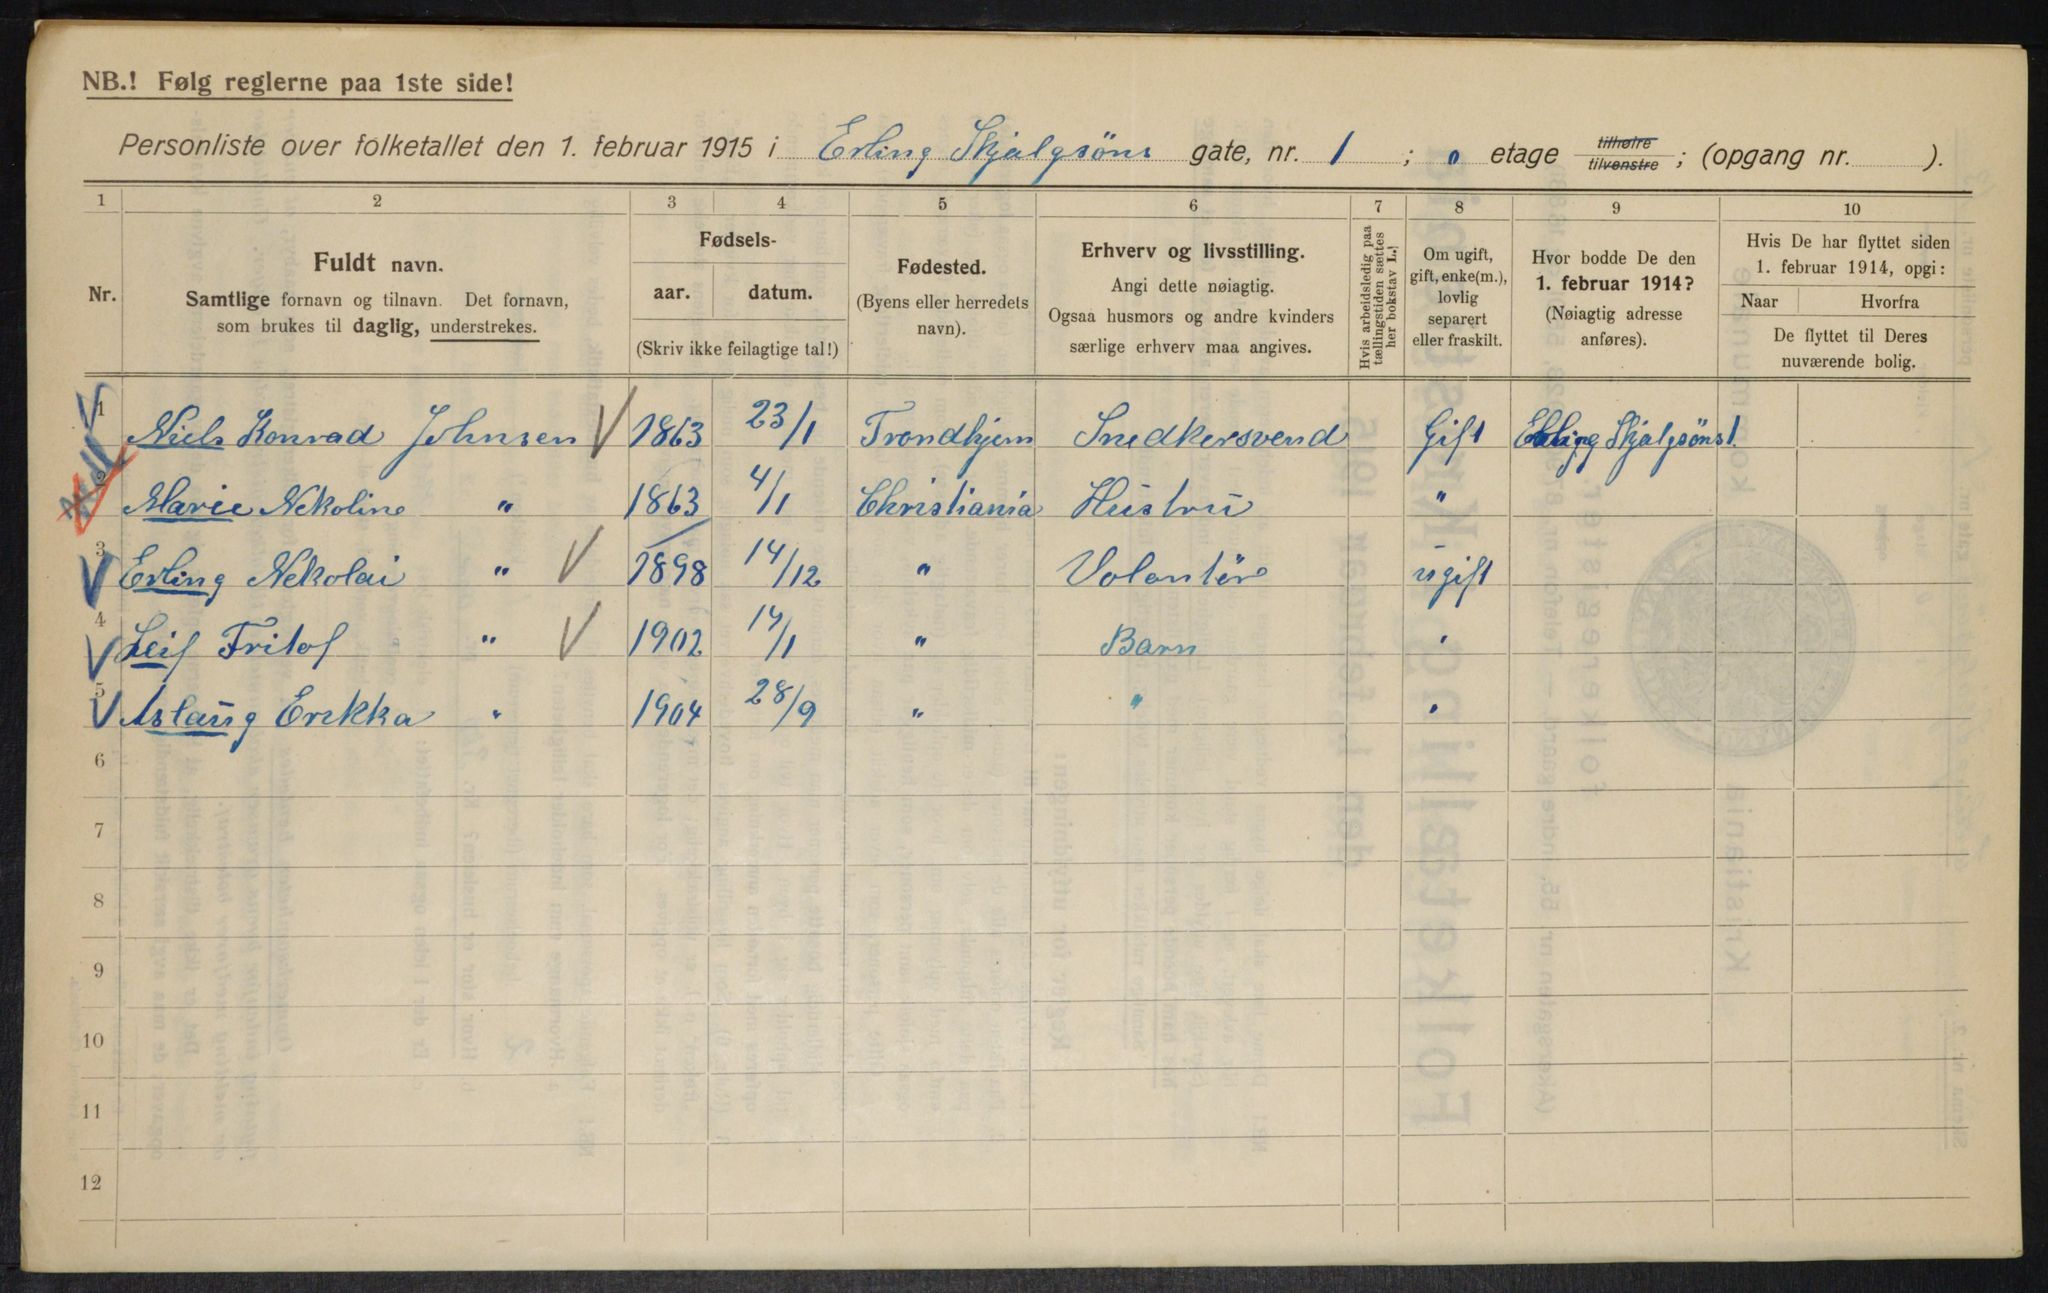 NB.! Følg reglerne paa 1ste side!
Personliste over folketallet den 1. februar 1915 i Erling Skjalgsöns gate, nr. 1 ; 0 etage tilhøire tilvenstre ; (opgang nr. ).
1 2 3 4 5 6 7 8 9 10
Nr.
Fuldt navn.
Samtlige fornavn og tilnavn. Det fornavn,
som brukes til daglig, understrekes.
Fødsels-
aar. datum.
(Skriv ikke feilagtige tal!)
Fødested.
(Byens eller herredets
navn).
Erhverv og livsstilling.
Angi dette nøiagtig.
Ogsaa husmors og andre kvinders
særlige erhverv maa angives.
Hvis arbeidsledig paa
tællingstiden sættes
her bokstav L.
Om ugift,
gift, enke(m.),
lovlig
separert
eller fraskilt.
Hvor bodde De den
1. februar 1914?
(Nøiagtig adresse
anføres).
Hvis De har flyttet siden
1. februar 1914, opgi:
Naar Hvorfra
De flyttet til Deres
nuværende bolig.
1 Niels Konrad Johnsen 1863 23/1 Trondhjem Snedkersvend Gift Erling Skjalgsöns 1
2 Marie Nekoline " 1863 4/1 Christiania Hustru "
3 Erling Nekolai " 1898 14/12 " Volontör ugift
4 Leif Tritof " 1902 14/1 " Barn "
5 Aslaug Erekka " 1904 28/9 " " "
6
7
8
9
10
11
12